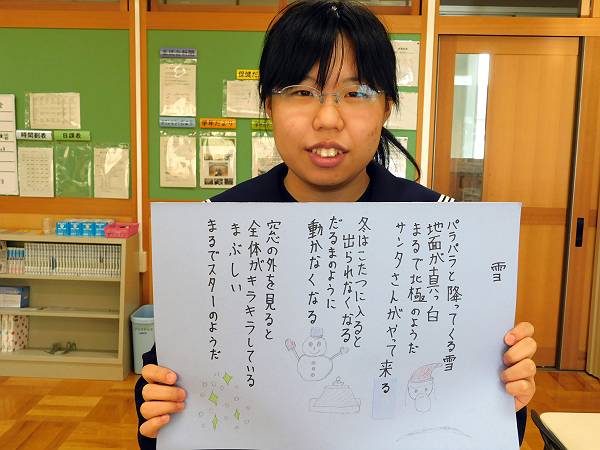 雪
パラパラと降ってくる雪
地面が真っ白
まるで北極のようだ
サンタさんがやって来る
冬はこたつに入ると
出られなくなる
だるまのように
動かなくなる
窓の外を見ると
全体がキラキラしている
まぶしい
まるでスターのようだ
時間割表
日課表